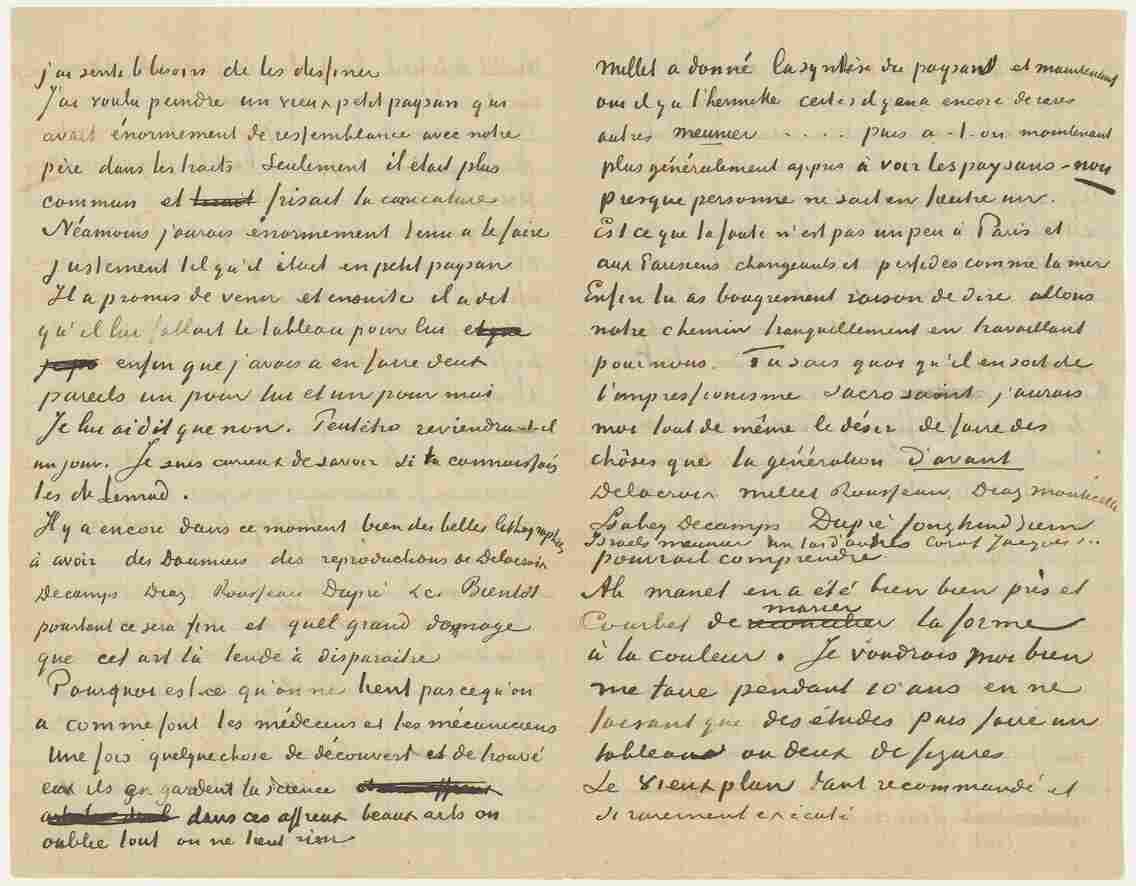 j'ai senti le besoin de les dessiner
J'ai voulu peindre un vieux petit paysan qui
avait énormement de ressemblance avec notre
père dans les traits Seulement il etait plus
commun et frisait la caricature
Néamoins j'aurais énormement tenu a le faire
justement tel qu'il était en petit paysan
Il a promis de venir et ensuite il a dit
qu'il lui fallait le tableau pour lui et que
je po enfin que j'avais a en faire deux
pareils un pour lui et un pour moi
Je lui ai dit que non. Peutêtre reviendra-t-il
un jour. Je suis curieux de savoir si tu connaissais
les de Lemud.
Il y a encore dans ce moment bien des belles lithographies
à avoir des Daumiers des reproductions de Delacroix
Decamps Diaz Rousseau Dupré &c. Bientôt
pourtant ce sera fini et quel grand dommage
que cet art là tende à disparaitre
Pourquoi est-ce qu'on ne tient pas cequ'on
a comme font les médecins et les mécaniciens
Une fois quelquechose de découvert et de trouvé
eux ils en gardent la science
dans ces affreux beaux arts on
oublie tout on ne tient rien
Millet a donné la synthèse du paysan et maintenant
oui il y a l'hermitte certes il y en a encore de rares
autres meunier .... puis a-t-on maintenant
plus généralement appris à voir les paysans – non
presque personne ne sait en foutre un.
Est ce que la faute n'est pas un peu à Paris et
aux Parisiens changeants et perfides comme la mer
Enfin tu as bougrement raison de dire allons
notre chemin tranquillement en travaillant
pour nous. Tu sais quoi qu'il en soit de
l'impressionisme sacro saint j'aurais
moi tout de même le désir de faire des
chôses que la génération d'avant
Delacroix Millet Rousseau Diaz Monticelli
Isabey Decamps Dupré Jongkind Ziem
Israels meunier un tas d'autres Corot Jacques ...
pourrait comprendre
Ah manet en a été bien bien près et
Courbet de reconcilier marier la forme
à la couleur. Je voudrais moi bien
me taire pendant 10 ans en ne
faisant que des études puis faire un
tableau ou deux de figures
Le vieux plan tant recommandé et
si rarement exécuté